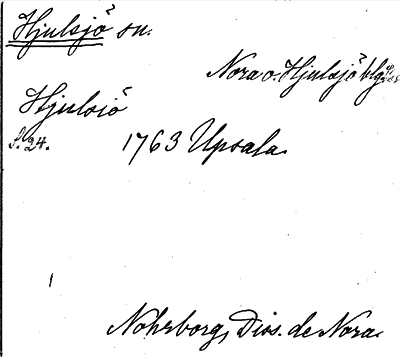 Hjulsjö sn.
Nora o. Hjulsjö blg
Hjulsiö
s. 24. 1763 Upsala.
Nohrborg, Diss. de Nora.